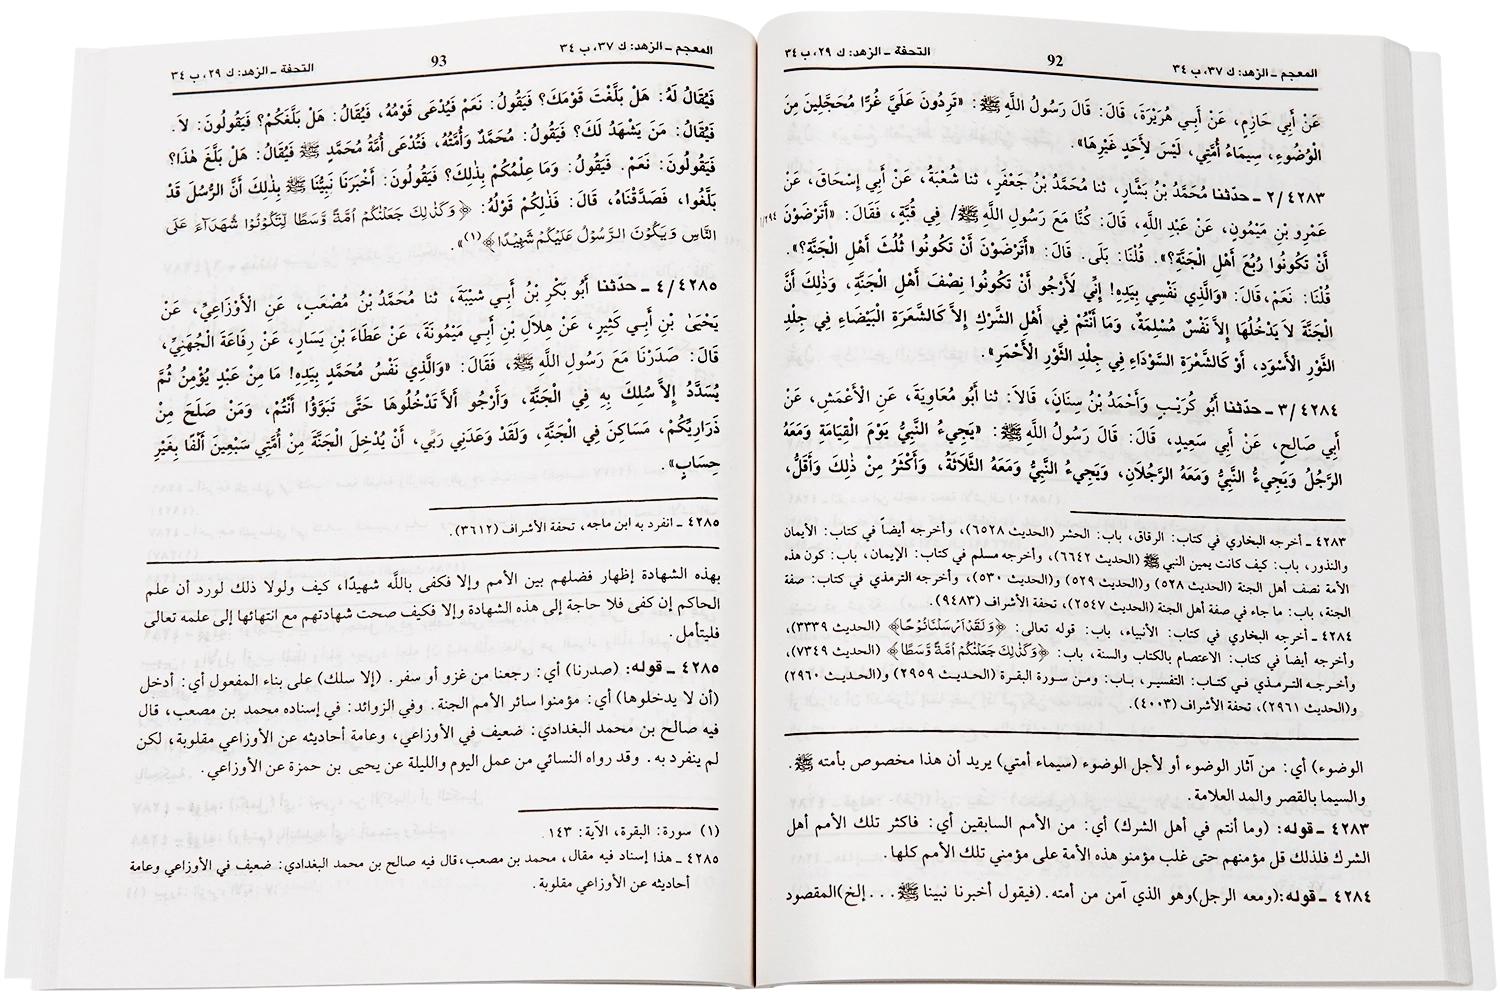 المعجم ـ الزهد: ك ٣٧، ب ٣٤
92
التحفة ـ الزهد: ك ٢٩، ب ٣٤
عَنْ أَبِي حَازِمٍ، عَنْ أَبِـي هُرَيْرَةَ، قَالَ: قَالَ رَسُولُ اللَّهِ ﷺ: «تَرِدُونَ عَلَيَّ غُرًّا مُحَجَّلِينَ مِنَ
الْوُضُوءِ، سِيمَاءُ أُمَّتِي، لَيْسَ لأَحِدٍ غَيْرِهَا».
٢/٤٢٨٣ ـ حدّثنا مُحَمَّدُ بْنُ بَشَّارٍ، ثنا مُحَمَّدُ بْنُ جَعْفَرٍ، ثنا شُعْبَةُ، عَنْ أَبِي إِسْحَاقَ، عَنْ
عَمْرِو بْنِ مَيْمُونٍ، عَنْ عَبْدِ اللَّهِ، قَالَ: كُنَّا مَعَ رَسُولِ اللَّهِ ﷺ/ فِي قُبَّةٍ، فَقَالَ: «أَتَرْضَوْنَ
أَنْ تَكُونُوا رُبُعَ أَهْلِ الْجَنَّةِ؟». قُلْنَا: بَلَى. قَالَ: «أَتَرْضَوْنَ أَنْ تَكُونُوا ثُلُثَ أَهْلِ الْجَنَّةِ؟».
قُلْنَا: نَعَمْ، قَالَ: «وَالَّذِي نَفْسِي بِيَدِهِ! إِنِّي لأَرْجُو أَنْ تَكُونُوا نِصْفَ أَهْلِ الْجَنَّةِ، وَذٰلِكَ أَنَّ
الْجَنَّةَ لاَ يَدْخُلُهَا إِلاَّ نَفْسٌ مُسْلِمَةٌ، وَمَا أَنْتُمْ فِي أَهْلِ الشِّرْكِ إِلاَّ كَالشَّعْرَةِ الْبَيْضَاءِ فِي جِلْدِ
الثَّوْرِ الأَسْوَدِ، أَوْ كَالشَّعْرَةِ السَّوْدَاءِ فِي جِلْدِ الثَّوْرِ الأَحْمَرِ».
٣/٤٢٨٤ ـ حدّثنا أَبُو كُرَيْبٍ وَأَحْمَدُ بْنُ سِنَانٍ، قَالاَ: ثنا أَبُو مُعَاوِيَةَ، عَنِ الأَعْمَشِ، عَنْ
أَبِي صَالِحٍ، عَنْ أَبِي سَعِيدٍ، قَالَ: قَالَ رَسُولُ اللَّهِ ﷺ: «يَجِيءُ النَّبِيُّ يَوْمَ الْقِيَامَةِ وَمَعَهُ
الرَّجُلُ وَيَجِيءُ النَّبِيُّ وَمَعَهُ الرَّجُلاَنِ، وَيَجِيءُ النَّبِيُّ وَمَعَهُ الثَّلاَثَةُ، وَأَكْثَرُ مِنْ ذٰلِكَ وَأَقَلُّ،
٤٢٨٣ ـ أخرجه البخاري في كتاب: الرقاق، باب: الحشر (الحديث ٦٥٢٨)، وأخرجه أيضاً في كتاب: الأيمان
والنذور، باب: كيف كانت يمين النبي ﷺ (الحديث ٦٦٤٢)، وأخرجه مسلم في كتاب: الإيمان، باب: كون هذه
الأمة نصف أهل الجنة (الحديث ٥٢٨) و(الحديث ٥٢٩) و(الحديث ٥٣٠)، وأخرجه الترمذي في كتاب: صفة
الجنة، باب: ما جاء في صفة أهل الجنة (الحديث ٢٥٤٧)، تحفة الأشراف (٩٤٨٣).
٤٢٨٤ ـ أخرجه البخاري في كتاب: الأنبياء، باب: قوله تعالى: ﴿وَلَقَدْ أَرْسَلْنَا نُوحًا﴾ (الحديث ٣٣٣٩)،
وأخرجه أيضاً في كتاب: الاعتصام بالكتاب والسنة، باب: ﴿وَكَذَٰلِكَ جَعَلْنَٰكُمْ أُمَّةً وَسَطًا﴾ (الحديث ٧٣٤٩)،
وأخرجه الترمذي في كتاب: التفسير، باب: ومن سورة البقرة (الحديث ٢٩٥٩) و(الحديث ٢٩٦٠)
و(الحديث ٢٩٦١)، تحفة الأشراف (٤٠٠٣).
الوضوء) أي: من آثار الوضوء أو لأجل الوضوء (سيماء أمتي) يريد أن هذا مخصوص بأمته ﷺ.
والسيما بالقصر والمد العلامة.
٤٢٨٣ ـ قوله: (وما أنتم في أهل الشرك) أي: من الأمم السابقين أي: فاكثر تلك الأمم أهل
الشرك فلذلك قل مؤمنهم حتى غلب مؤمنو هذه الأمة على مؤمني تلك الأمم كلها.
٤٢٨٤ ـ قوله:(ومعه الرجل)وهو الذي آمن من أمته. (فيقول أخبرنا نبينا ﷺ . . . إلخ)المقصود
المعجم ـ الزهد: ك ٣٧، ب ٣٤
93
التحفة ـ الزهد: ك ٢٩، ب ٣٤
فَيُقَالُ لَهُ: هَلْ بَلَّغْتَ قَوْمَكَ؟ فَيَقُولُ: نَعَمْ فَيُدْعَى قَوْمُهُ، فَيُقَالُ: هَلْ بَلَّغَكُمْ؟ فَيَقُولُونَ: لاَ.
فَيُقَالُ: مَنْ يَشْهَدُ لَكَ؟ فَيَقُولُ: مُحَمَّدٌ وَأُمَّتُهُ، فَتُدْعَى أُمَّةُ مُحَمَّدٍ ﷺ فَيُقَالُ: هَلْ بَلَّغَ هٰذَا؟
فَيَقُولُونَ: نَعَمْ. فَيَقُولُ: وَمَا عِلْمُكُمْ بِذٰلِكَ؟ فَيَقُولُونَ: أَخْبَرَنَا نَبِيُّنَا ﷺ بِذٰلِكَ أَنَّ الرُّسُلَ قَدْ
بَلَّغُوا، فَصَدَّقْنَاهُ، قَالَ: فَذٰلِكُمْ قَوْلُهُ: ﴿وَكَذَٰلِكَ جَعَلْنَٰكُمْ أُمَّةً وَسَطًا لِّتَكُونُوا شُهَدَآءَ عَلَى
النَّاسِ وَيَكُونَ الرَّسُولُ عَلَيْكُمْ شَهِيدًا﴾(١)».
٤/٤٢٨٥ ـ حدّثنا أَبُو بَكْرِ بْنُ أَبِي شَيْبَةَ، ثنا مُحَمَّدُ بْنُ مُصْعَبٍ، عَنِ الأَوْزَاعِيِّ، عَنْ
يَحْيَىٰ بْنِ أَبِي كَثِيرٍ، عَنْ هِلاَلِ بْنِ أَبِي مَيْمُونَةَ، عَنْ عَطَاءِ بْنِ يَسَارٍ، عَنْ رِفَاعَةَ الْجُهَنِيِّ،
قَالَ: صَدَرْنَا مَعَ رَسُولِ اللَّهِ ﷺ، فَقَالَ: «وَالَّذِي نَفْسُ مُحَمَّدٍ بِيَدِهِ! مَا مِنْ عَبْدٍ يُؤْمِنُ ثُمَّ
يُسَدَّدُ إِلاَّ سُلِكَ بِهِ فِي الْجَنَّةِ، وَأَرْجُو أَلاَّ تَدْخُلُوهَا حَتَّى تَبَوَّؤُا أَنْتُمْ، وَمَنْ صَلَحَ مِنْ
ذَرَارِيِّكُمْ، مَسَاكِنَ فِي الْجَنَّةِ، وَلَقَدْ وَعَدَنِي رَبِّي، أَنْ يُدْخِلَ الْجَنَّةَ مِنْ أُمَّتِي سَبْعِينَ أَلْفًا بِغَيْرِ
حِسَابٍ».
٤٢٨٥ ـ انفرد به ابن ماجه، تحفة الأشراف (٣٦١٢).
بهذه الشهادة إظهار فضلهم بين الأمم وإلا فكفى باللَّه شهيدًا، كيف ولولا ذلك لورد أن علم
الحاكم إن كفى فلا حاجة إلى هذه الشهادة وإلا فكيف صحت شهادتهم مع انتهائها إلى علمه تعالى
فليتأمل.
٤٢٨٥ ـ قوله: (صدرنا) أي: رجعنا من غزو أو سفر. (إلا سلك) على بناء المفعول أي: أدخل
(أن لا يدخلوها) أي: مؤمنوا سائر الأمم الجنة. وفي الزوائد: في إسناده محمد بن مصعب، قال
فيه صالح بن محمد البغدادي: ضعيف في الأوزاعي، وعامة أحاديثه عن الأوزاعي مقلوبة، لكن
لم ينفرد به. وقد رواه النسائي من عمل اليوم والليلة عن يحيى بن حمزة عن الأوزاعي.
(١) سورة: البقرة، الآية: ١٤٣.
٤٢٨٥ ـ هذا إسناد فيه مقال، محمد بن مصعب،قال فيه صالح بن محمد البغدادي: ضعيف في الأوزاعي وعامة
أحاديثه عن الأوزاعي مقلوبة.